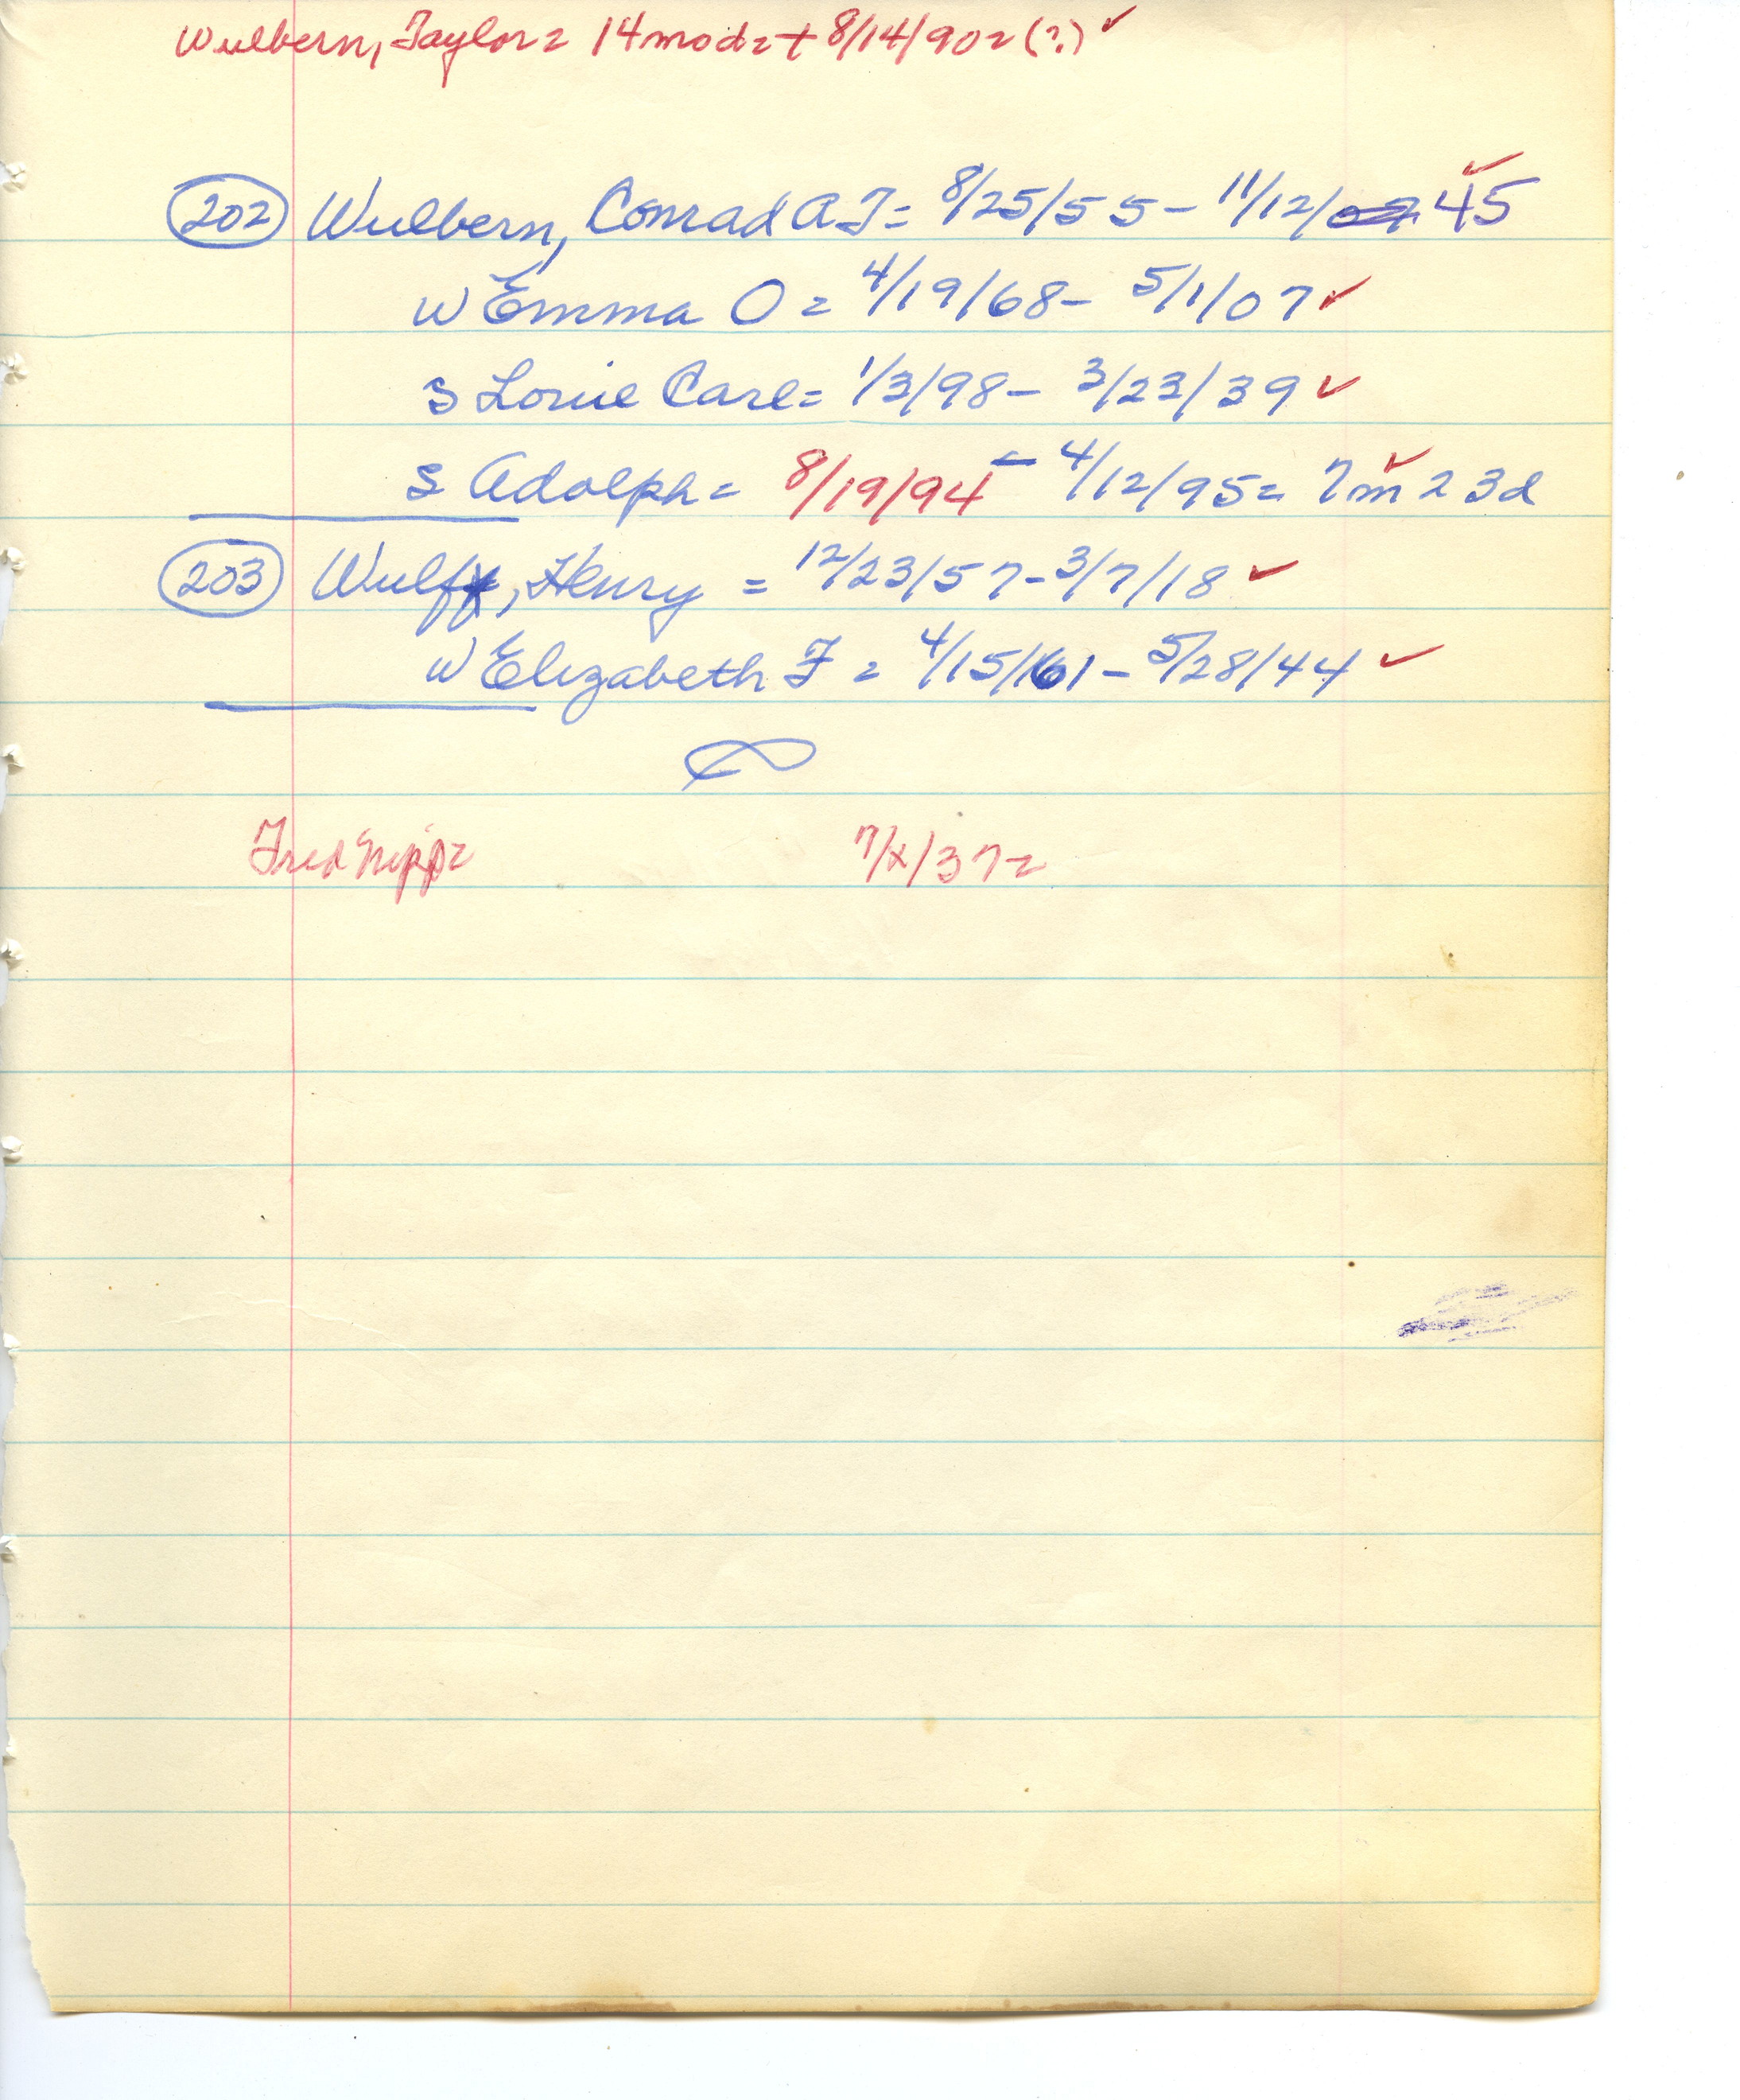 Wulbern, Taylor = 14 mo d = + 8/14/90 = (?) ✓
202 Wulbern, Conrad A F = 8/25/55 - 11/12/ 45 ✓
W Emma O = 4/19/68 - 5/1/07 ✓
S Louie Carl = 1/3/98 - 3/23/39 ✓
S Adolph = 8/19/94 - 4/12/95 = 7m 23d ✓
203 Wulff, Henry = 12/23/57 - 3/7/18 ✓
W Elizabeth F = 4/15/61 - 5/28/44 ✓
Fred = 7/x/37 =